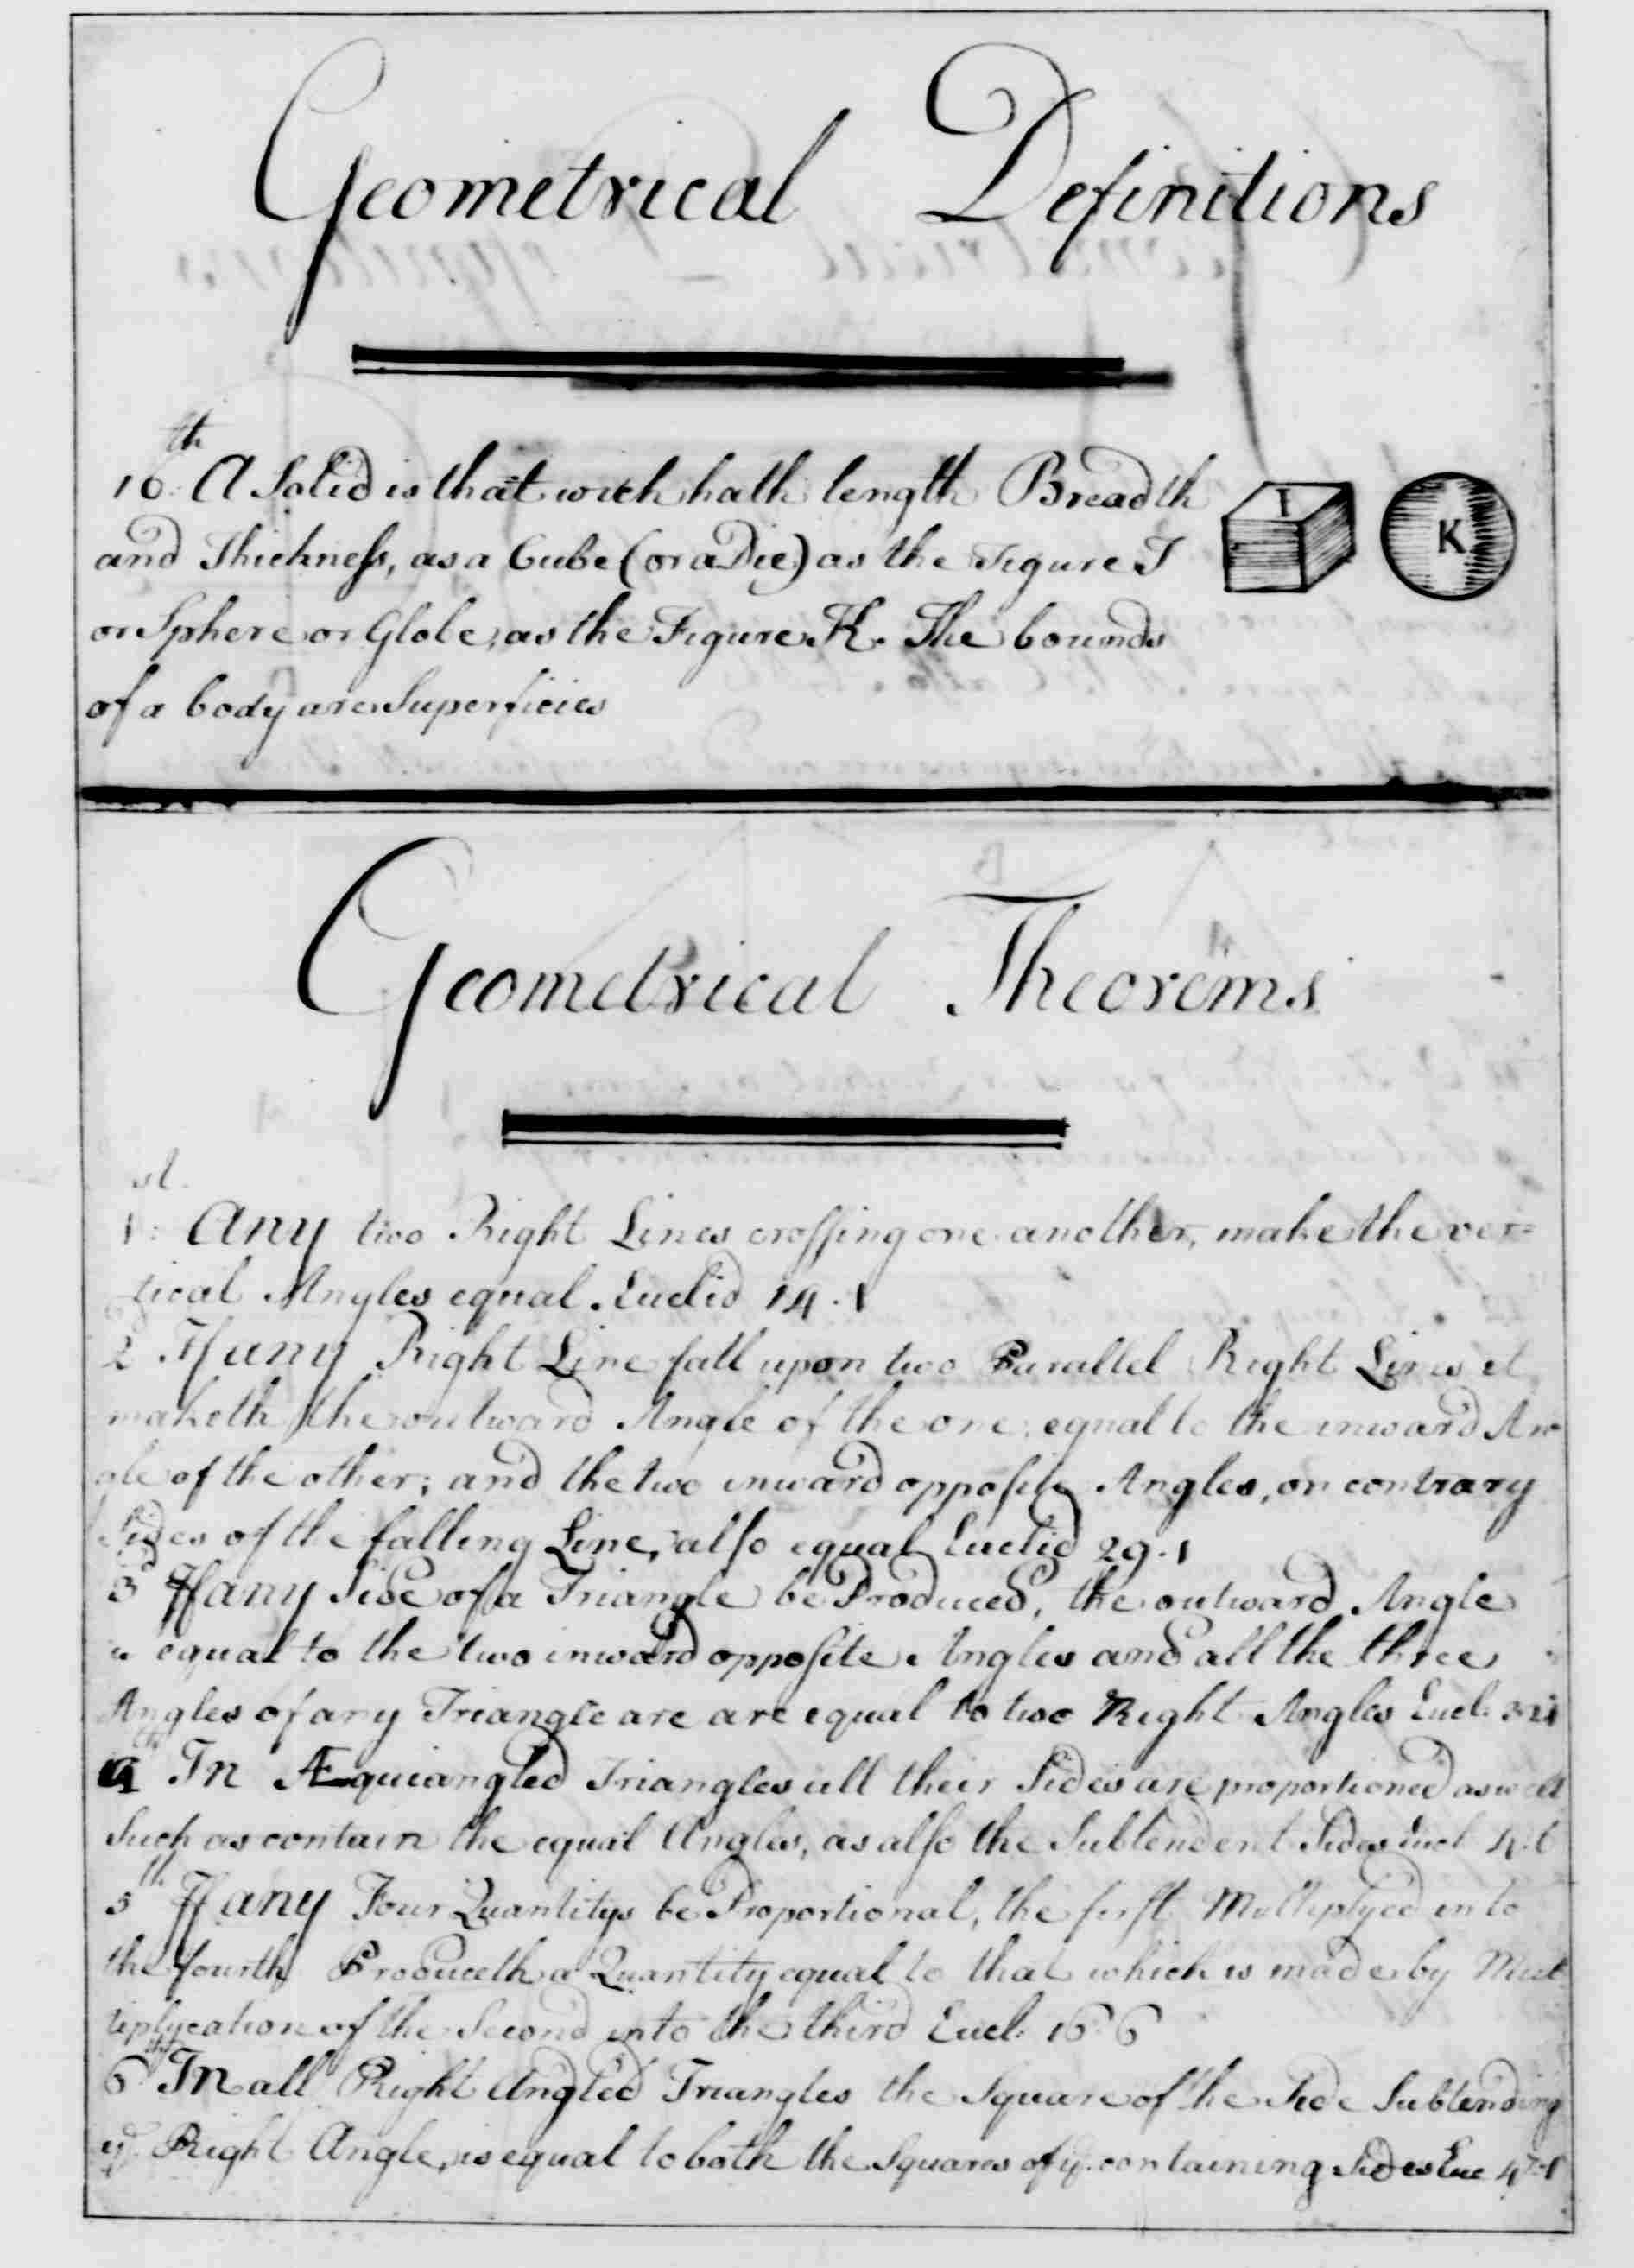 Geometrical Definitions
16th A Solid is that wich hath length Breadth
and Thickness, as a Cube (or a Die) as the Figure I
or Sphere or Globe, as the Figure K. The bounds
of a body are Superficies
I K
Geometrical Theorems
1st: Any two Right Lines crossing one another, make the ver=
tical Angles equal. Euclid 14.1
2d If any Right Line fall upon two Parallel Right Lines it
maketh the outward Angle of the one, equal to the inward An
gle of the other; and the two inward opposite Angles, on contrary
Sides of the falling Line, also equal Euclid 29.1
3d If any Side of a Triangle be Produced, the outward Angle
is equal to the two inward opposite Angles and all the three
Angles of any Triangle are are equal to two Right Angles Eucl:
4th In Æquiangled Triangles all their Sides are proportioned as well
Such as contain the equal Angles, as also the Subtendent Sides Eucl 4.6
5th If any Four Quantitys be Proportional, the first Multiplyed into
the fourth Produceth a Quantity equal to that which is made by Mul
tiplycation of the Second into the third Eucl: 16 6
6th In all Right Angled Triangles the Square of the Side Subtending
ye Right Angle, is equal to both the Squares of ye containing Sides Euc 47.1